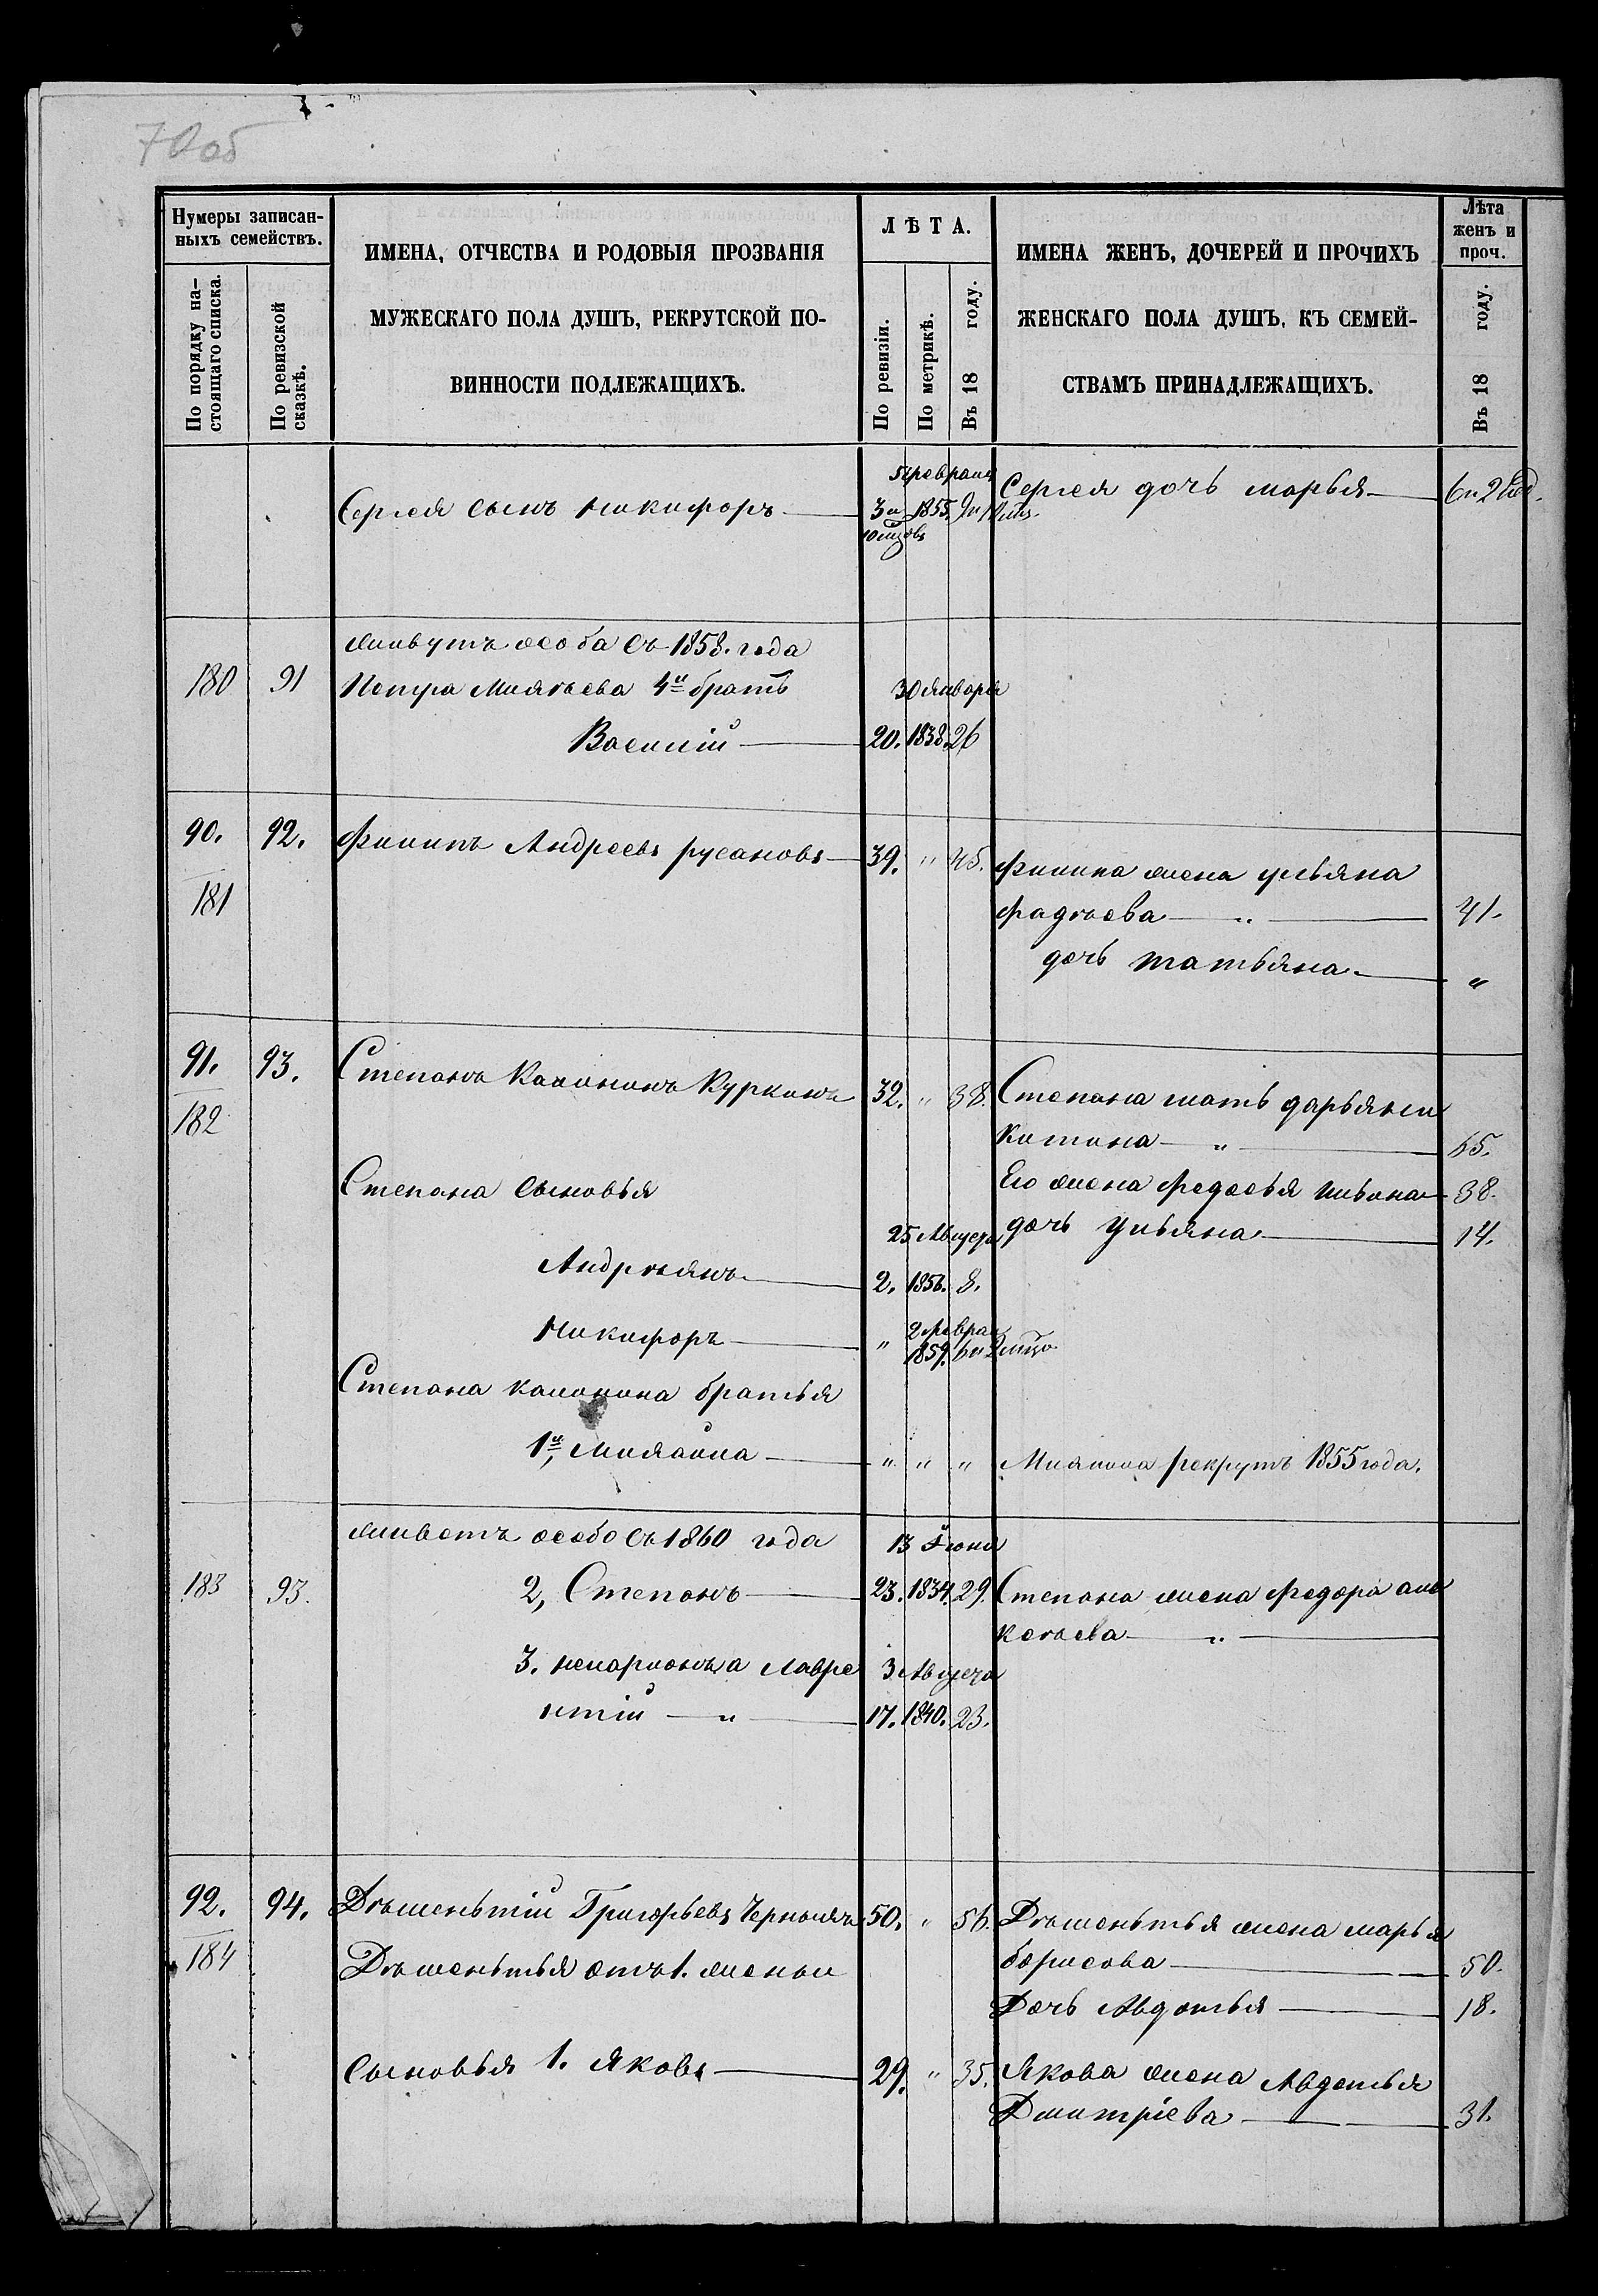 70об
Нумеры записан-
ныхъ семействъ.
По порядку на-
стоящаго списка.
По ревизской
сказкѣ.
ИМЕНА, ОТЧЕСТВА И РОДОВЫЯ ПРОЗВАНІЯ
МУЖЕСКАГО ПОЛА ДУШЪ, РЕКРУТСКОЙ ПО-
ВИННОСТИ ПОДЛЕЖАЩИХЪ.
ЛѢТА.
По ревизіи.
По метрикѣ.
Въ 18 году.
ИМЕНА ЖЕНЪ, ДОЧЕРЕЙ И ПРОЧИХЪ
ЖЕНСКАГО ПОЛА ДУШЪ, КЪ СЕМЕЙ-
СТВАМЪ ПРИНАДЛЕЖАЩИХЪ.
Лѣта
женъ и
проч.
Въ 18 году.
5 февраля
Сергея сынъ Никифоръ 3 и 1855. Сергея дочь марья
10 мцовъ
живутъ особа съ 1858. года
180 91 Петра 4й братъ 30 января
Василій 20. 1838. 26
90. 92. Филипъ Андреевъ русановъ 39. " 45. Филипа жена ульяна
181 фадѣева " 41.
дочь татьяна "
91. 93. Степанъ Калининъ Куркинъ 32. " 38. Степана мать дарья ни
182 китина " 65.
Степана сыновья Его жена федосья 38.
25 Августа дочь Ульяна 14.
Андреянъ 2. 1856. 8.
2 феврал
Никифоръ " 1859. 6 и
Степана калинина братья
1й, " " " рекрутъ 1855 года.
живетъ особо съ 1860 года 13 Іюня
183 93. 2, Степанъ 23. 1834. 29. Степана жена федора али
кѣева "
3. а Лавре 3 Августа
нтій " 17. 1840. 23.
92. 94. Дѣментій Григорьевъ 50. " 56. Дѣментья жена марья
184 Дѣментья отъ 1. жены борисова 50.
Дочь Авдотья 18.
Сыновья 1. Яковъ 29. " 35. Якова жена Авдотья
Дмитріева 31.